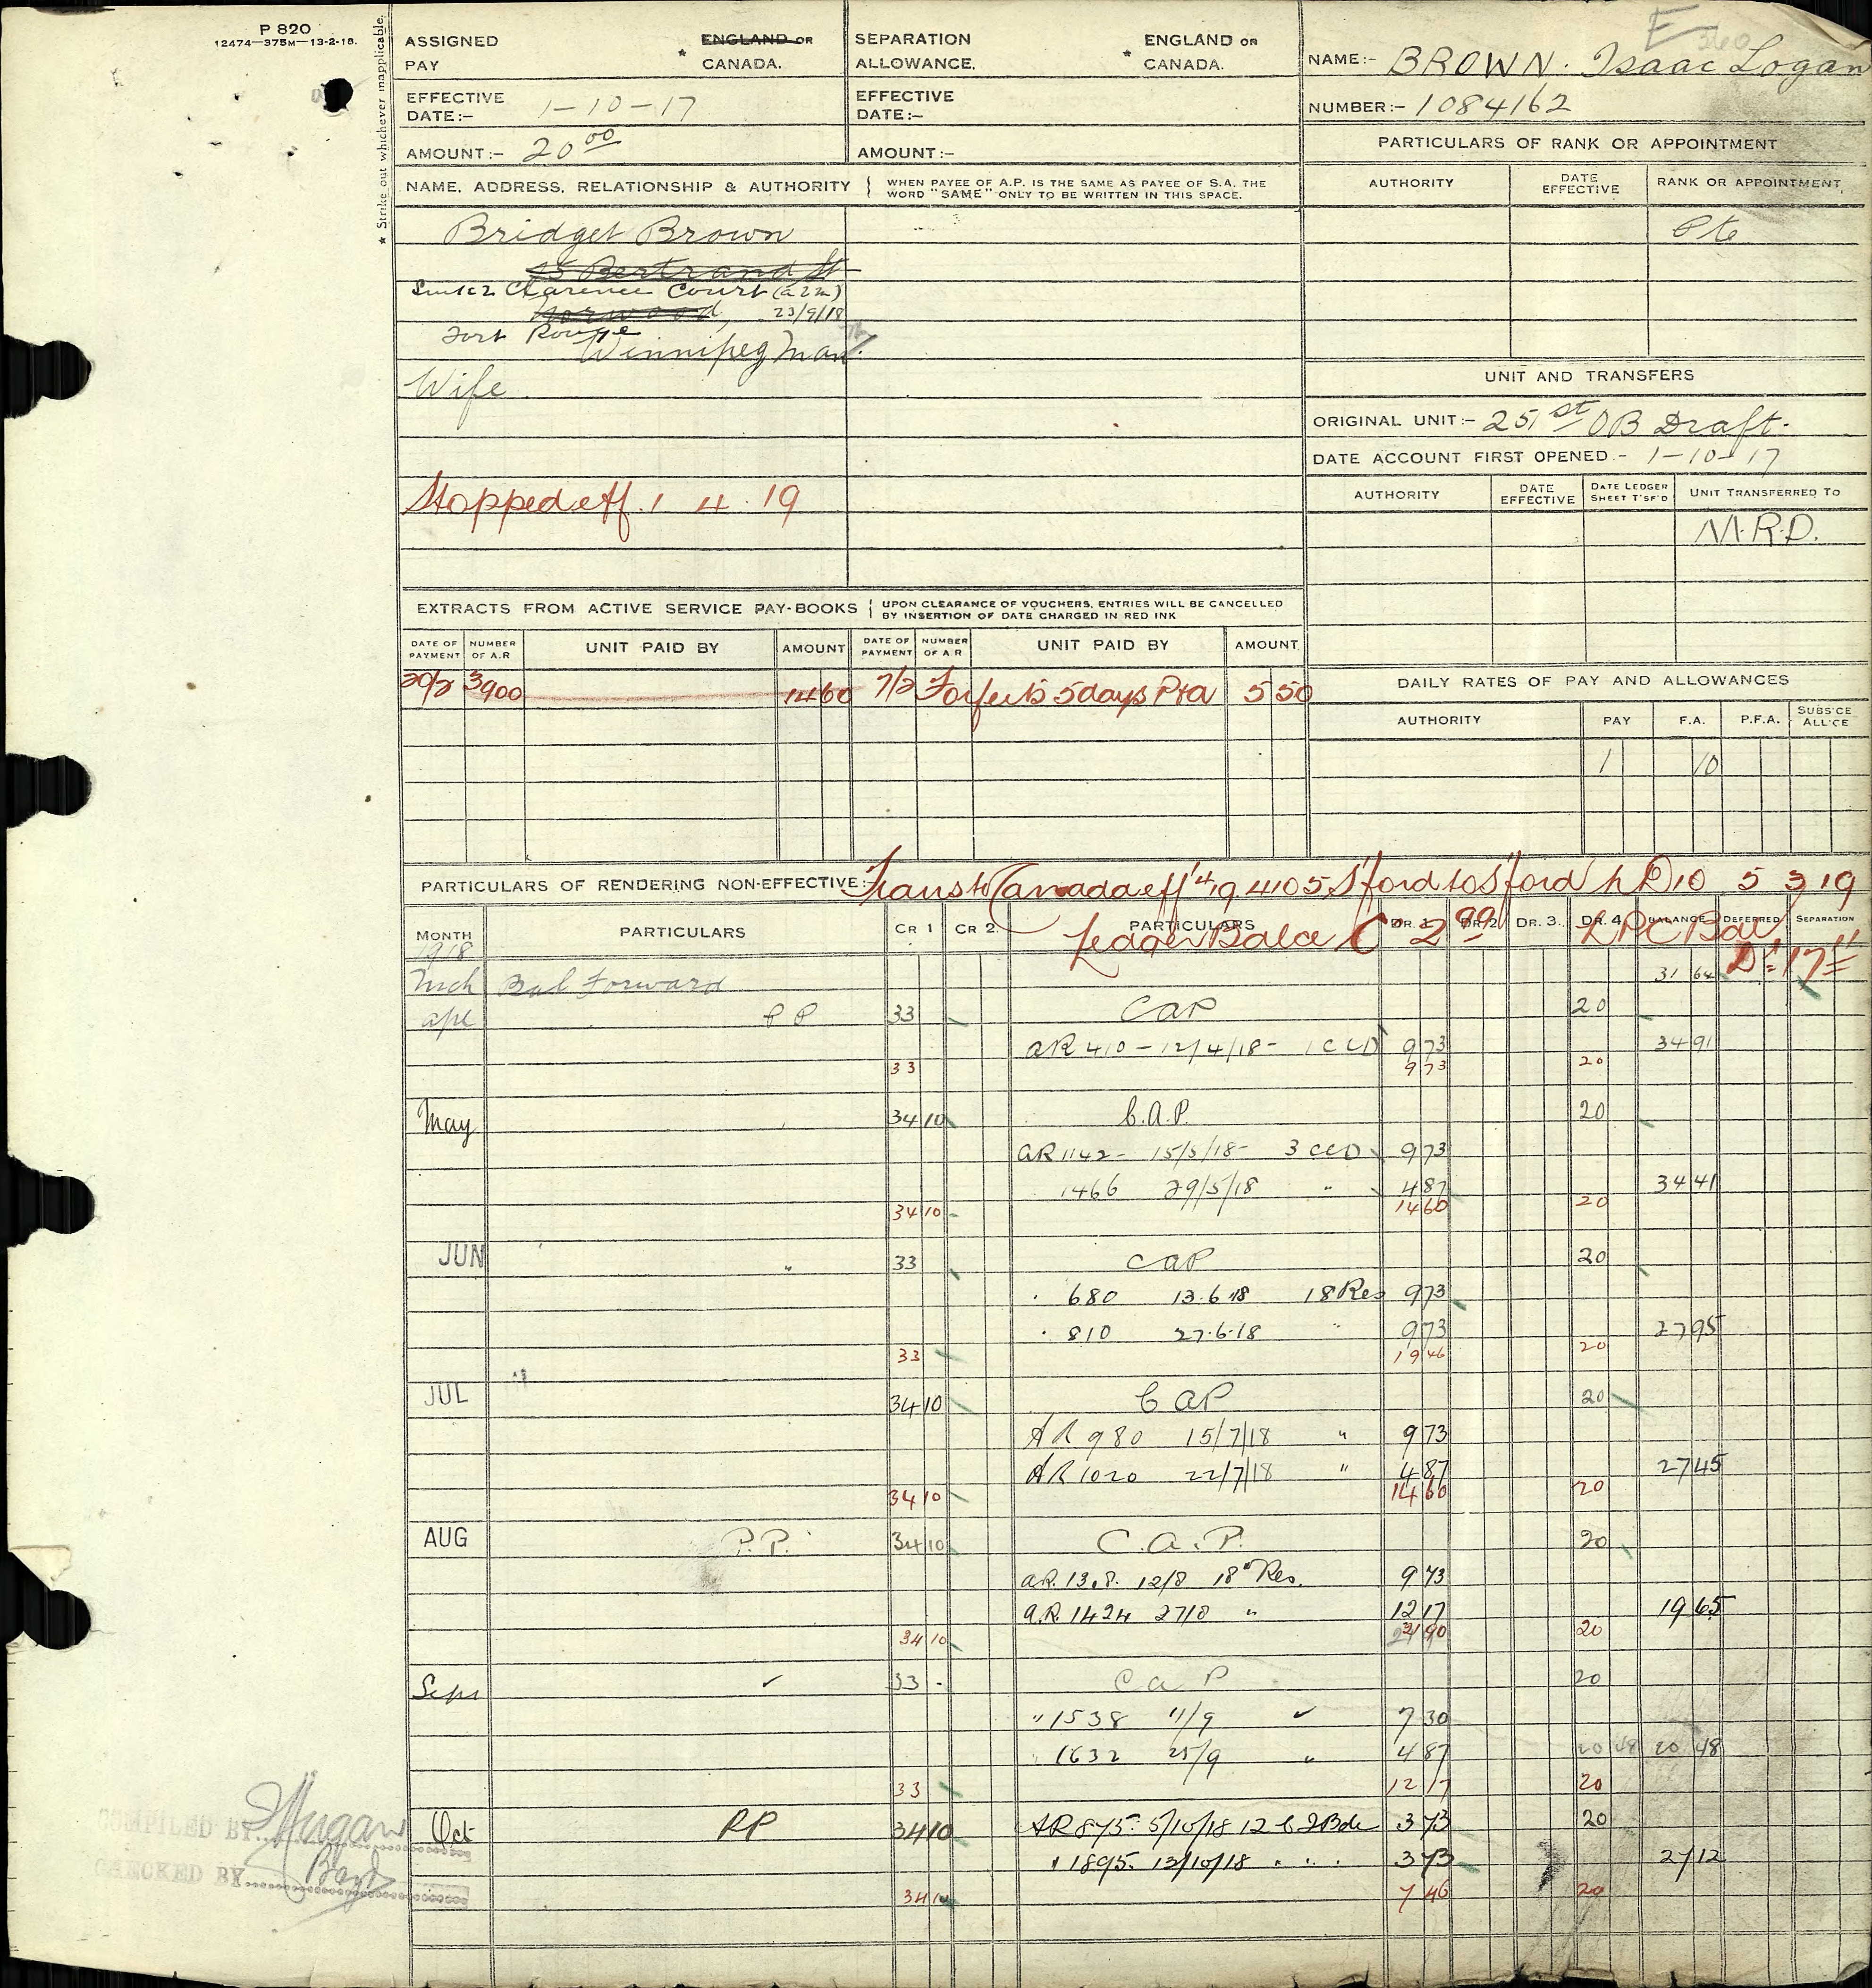 P 820
12474—375M—13-2-18.
* Strike out whichever inapplicable.
ASSIGNED PAY * ENGLAND OR CANADA.
EFFECTIVE DATE:- 1-10-17
AMOUNT:- 20 00
SEPARATION ALLOWANCE. * ENGLAND OR CANADA.
EFFECTIVE DATE:-
AMOUNT:-
NAME:- BROWN. Isaac Logan
NUMBER:- 1084162
NAME, ADDRESS, RELATIONSHIP & AUTHORITY { WHEN PAYEE OF A.P. IS THE SAME AS PAYEE OF S.A. THE WORD "SAME" ONLY TO BE WRITTEN IN THIS SPACE.
Bridget Brown
45 Bertrand St
Suite 2 Clarence Court (a 2 m)
Norwood, 23/9/18
Fort Rouge
Winnipeg Man.
Wife
Stopped eff. 1 4 19
PARTICULARS OF RANK OR APPOINTMENT
AUTHORITY DATE EFFECTIVE RANK OR APPOINTMENT
Pte
UNIT AND TRANSFERS
ORIGINAL UNIT:- 251st OB Draft.
DATE ACCOUNT FIRST OPENED.- 1-10-17
AUTHORITY DATE EFFECTIVE DATE LEDGER SHEET T'SF'D UNIT TRANSFERRED TO
M.R.D.
EXTRACTS FROM ACTIVE SERVICE PAY-BOOKS { UPON CLEARANCE OF VOUCHERS, ENTRIES WILL BE CANCELLED BY INSERTION OF DATE CHARGED IN RED INK
DATE OF PAYMENT NUMBER OF A.R UNIT PAID BY AMOUNT DATE OF PAYMENT NUMBER OF A R UNIT PAID BY AMOUNT
20/2 3900 14 60 7/2 Forfeits 5 days P&A 5 50
DAILY RATES OF PAY AND ALLOWANCES
AUTHORITY PAY F.A. P.F.A. SUBS'CE ALL'CE
1 10
PARTICULARS OF RENDERING NON-EFFECTIVE:- Trans to Canada eff 1/4/19 4105 S'ford to S'ford h D10 5 3 19
MONTH PARTICULARS CR 1 CR 2. PARTICULARS DR. 1 DR. 2 DR. 3. DR. 4. BALANCE DEFERRED SEPARATION
Ledger Balce C 2 99 LPC Bal Dr 17
1918
Mch Bal Forward 31 64
Apl PP 33 CAP 20
AR 410 - 12/4/18 - 1 CCD 9 73 34 91
33 9 73 20
May 34 10 C.A.P. 20
AR 1142 - 15/5/18 - 3 CCD 9 73
1466 29/5/18 " 4 87 34 41
34 10 14 60 20
JUN " 33 CAP 20
680 13.6.18 18 Res 9 73
810 27.6.18 " 9 73 27 95
33 19 46 20
JUL " 34 10 C AP 20
AR 980 15/7/18 " 9 73
AR 1020 22/7/18 " 4 87 27 45
34 10 14 60 20
AUG P.P. 34 10 C.A.P. 20
9 73
A.R. 1424 27/8 " 12 17 19 65
34 10 21 90 20
Sept 33 - C a P 20
" 1538 11/9 7 30
" 1632 25/9 " 4 87 20 48 20 48
33 12 17 20
Oct PP 34 10 AR 875 5/10/18 3 73 20
" 1895 13/10/18 " " 3 73 27 12
34 10 7 46 20
COMPILED BY
CHECKED BY